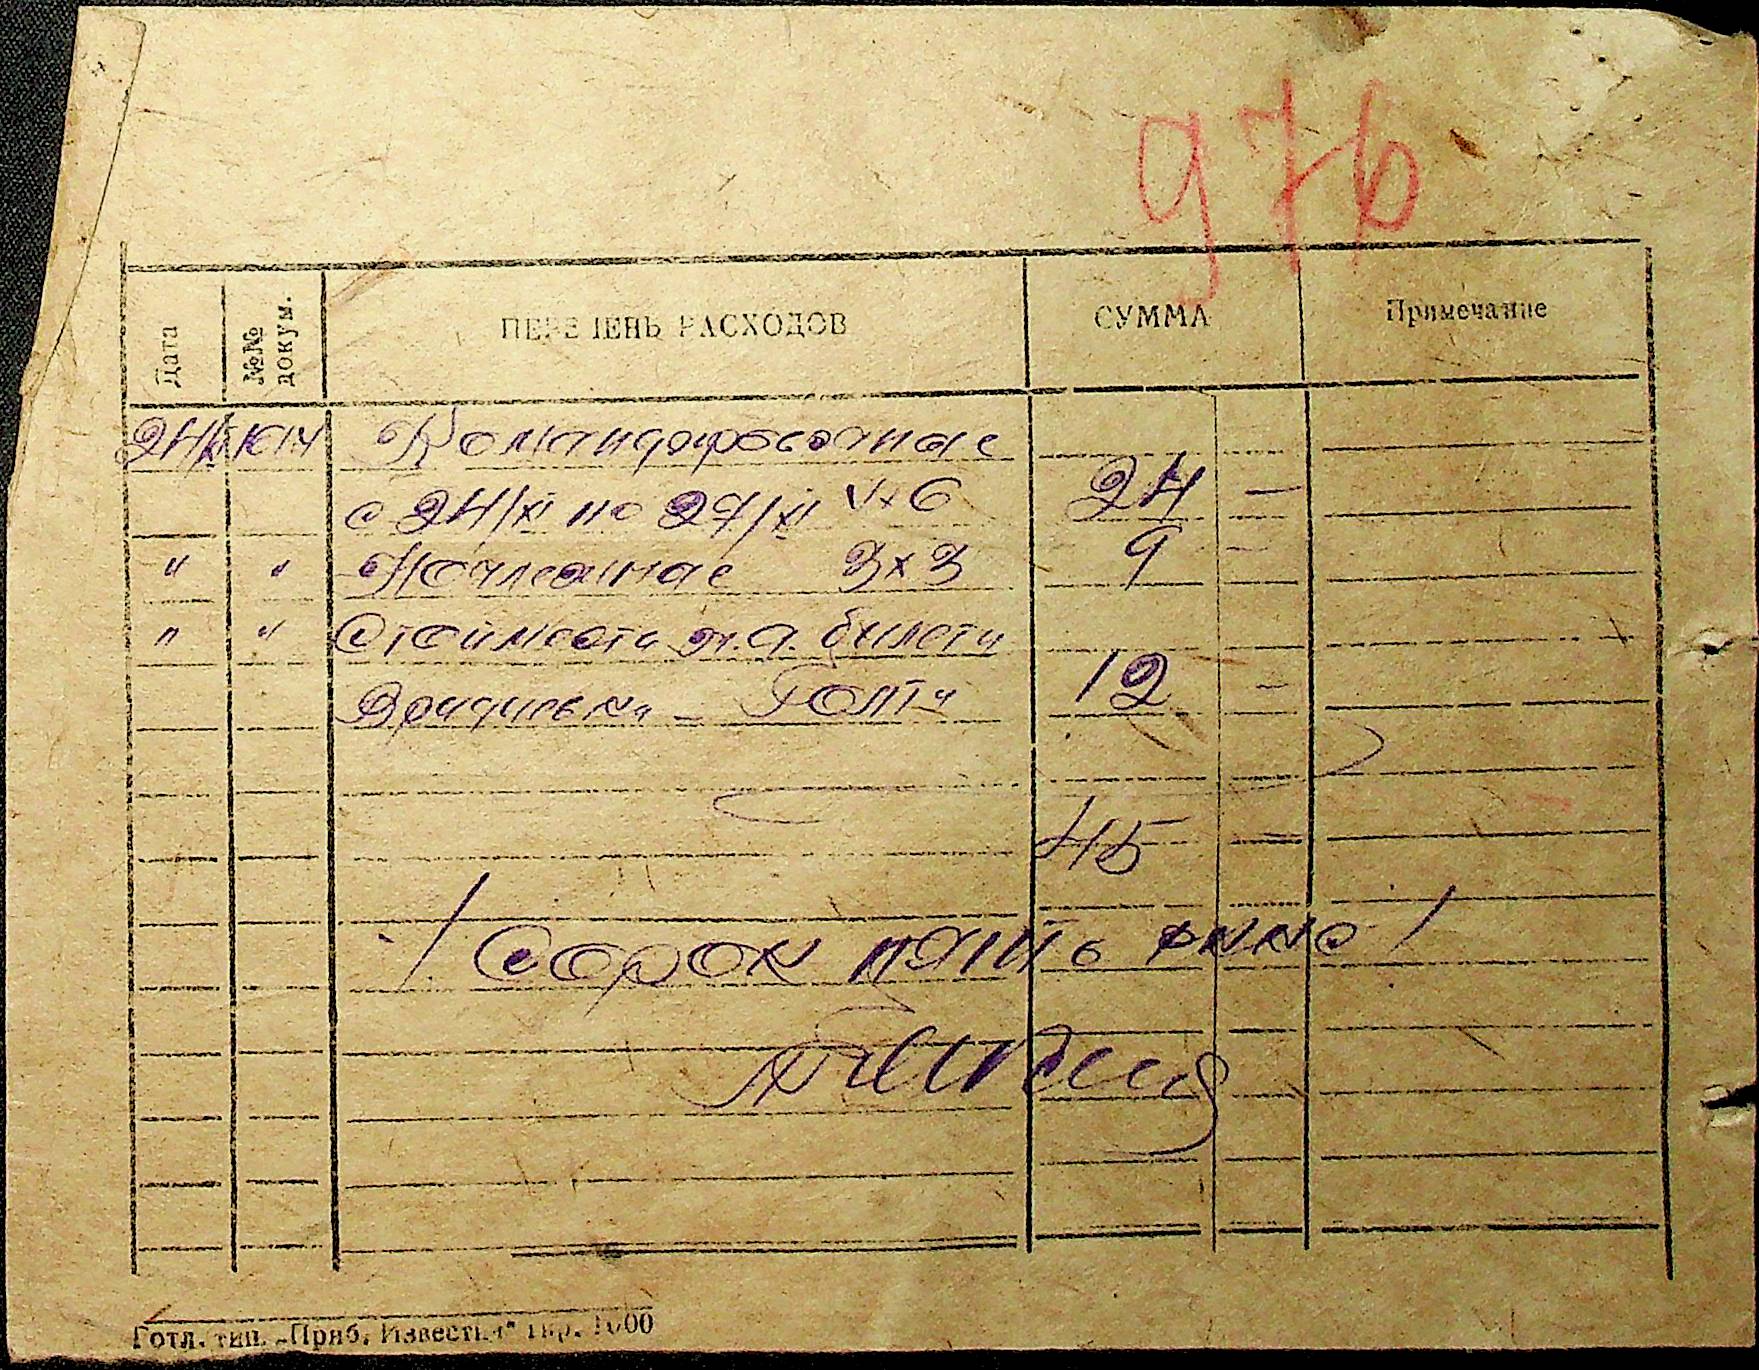 976
Дата №№ докум. ПЕРЕЧЕНЬ РАСХОДОВ СУММА Примечание
24/XI Командировочные
с 24/XI по 27/XI 4х6 24 —
" " Ночлежные 3х3 9 —
" " Стоимость ж.д. билета
— Голта 12 —
45 —
/ Сорок пять /
Готл. тип. „Приб. Известия" тир. 1000